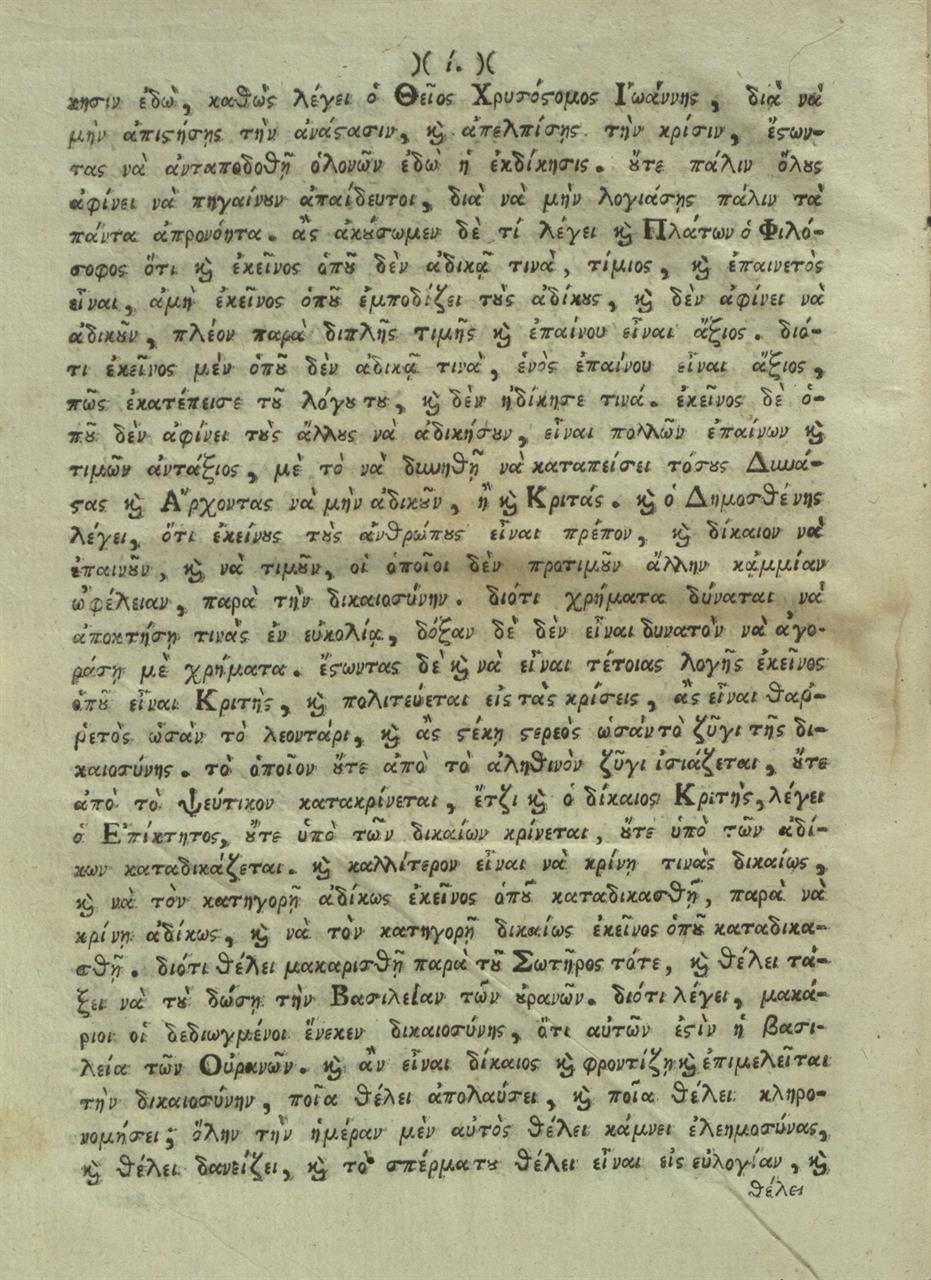 )( ί. )(
κησιν ἐδὼ, καθὼς λέγει ὁ Θεῖος Χρυσόϛομος Ἰωάννης, διὰ νὰ
μὴν ἀπιϛήσῃς τὴν ἀνάϛασιν, ϗ ἀπελπίσῃς τὴν κρίσιν, ἔϛων-
τας νὰ ἀνταποδοθῇ ὁλονῶν ἐδὼ ἡ ἐκδίκησις. ȣ̓́τε πάλιν ὅλȣς
ἀφίνει νὰ πηγαίνȣν ἀπαίδευτοι, διὰ νὰ μὴν λογιάσῃς πάλιν τὰ
πάντα ἀπρονόητα. ἂς ἀκȣ́σωμεν δὲ τί λέγει ϗ Πλάτων ὁ Φιλό-
σοφος ὅτι ϗ ἐκεῖνος ὁπȣ͂ δὲν ἀδικᾷ τινὰ, τίμιος, ϗ ἐπαινετὸς
εἶναι, ἀμὴ ἐκεῖνος ὁπȣ͂ ἐμποδίζει τȣ̀ς ἀδίκȣς, ϗ δὲν ἀφίνει νὰ
ἀδικȣ͂ν, πλέον παρὰ διπλῆς τιμῆς ϗ ἐπαίνου εἶναι ἄξιος. διό-
τι ἐκεῖνος μὲν ὁπȣ͂ δὲν ἀδικᾷ τινὰ, ἑνὸς ἐπαίνου εἶναι ἄξιος,
πῶς ἐκατέπεισε τȣ͂ λόγȣ τȣ, ϗ δὲν ἠδίκησε τινά. ἐκεῖνος δὲ ὁ-
πȣ͂ δὲν ἀφίνει τȣ̀ς ἄλλȣς νὰ ἀδικήσȣν, εἶναι πολλῶν ἐπαίνων ϗ
τιμῶν ἀντάξιος, μὲ τὸ νὰ δυνηθῇ νὰ καταπείσει τόσȣς Δυνά-
ϛας ϗ Ἄρχοντας νὰ μὴν ἀδικȣ͂ν, ἢ ϗ Κριτάς. ϗ ὁ Δημοσθένης
λέγει, ὅτι ἐκείνȣς τȣ̀ς ἀνθρώπȣς εἶναι πρέπον, ϗ δίκαιον νὰ
ἐπαινȣ͂ν, ϗ νὰ τιμȣ͂ν, οἱ ὁποῖοι δὲν προτιμȣ͂ν ἄλλην κᾀμμίαν
ὠφέλειαν, παρὰ τὴν δικαιοσύνην. διότι χρήματα δύναται νὰ
ἀποκτήσῃ τινὰς ἐν εὐκολίᾳ, δόξαν δὲ δὲν εἶναι δυνατὸν νὰ ἀγο-
ράσῃ μὲ χρήματα. ἔϛωντας δὲ ϗ νὰ εἶναι τέτοιας λογῆς ἐκεῖνος
ὁπȣ͂ εἶναι Κριτὴς, ϗ πολιτεύεται εἰς τὰς κρίσεις, ἂς εἶναι θαρ-
ῥετὸς ὡσὰν τὸ λεοντάρι, ϗ ἂς ϛέκῃ ϛερεὸς ὡσὰν τὸ ζῦγι τῆς δι-
καιοσύνης. τὸ ὁποῖον ȣ̓́τε ἀπὸ τὸ ἀληθινὸν ζῦγι ἰσιάζεται, ȣ̓́τε
ἀπὸ τὸ ψεύτικον κατακρίνεται, ἔτζι ϗ ὁ δίκαιος Κριτὴς, λέγει
ὁ Ἐπίκτητος, ȣ̓́τε ὑπὸ τῶν δικαίων κρίνεται, ȣ̓́τε ὑπὸ τῶν ἀδί-
κων καταδικάζεται. ϗ καλλίτερον εἶναι νὰ κρίνῃ τινὰς δικαίως,
ϗ νὰ τὸν κατηγορῇ ἀδίκως ἐκεῖνος ὁπȣ͂ καταδικασθῇ, παρὰ νὰ
κρίνῃ ἀδίκως, ϗ νὰ τὸν κατηγορῇ δικαίως ἐκεῖνος ὁπȣ͂ καταδικα-
σθῇ. διότι θέλει μακαρισθῇ παρὰ τȣ͂ Σωτῆρος τότε, ϗ θέλει τά-
ξει νὰ τȣ͂ δώσῃ τὴν Βασιλείαν τῶν ȣ̓ρανῶν. διότι λέγει, μακά-
ριοι οἱ δεδιωγμένοι ἕνεκεν δικαιοσύνης, ὅτι αὐτῶν ἐϛὶν ἡ βασι-
λεία τῶν Οὐρανῶν. ϗ ἂν εἶναι δίκαιος ϗ φροντίζῃ ϗ ἐπιμελεῖται
τὴν δικαιοσύνην, ποῖα θέλει ἀπολαύσει, ϗ ποῖα θέλει κληρο-
νομήσει; ὅλην τὴν ἡμέραν μὲν αὐτὸς θέλει κάμνει ἐλεημοσύνας,
ϗ θέλει δανείζει, ϗ τὸ σπέρματȣ θέλει εἶναι εἰς εὐλογίαν, ϗ
θέλει